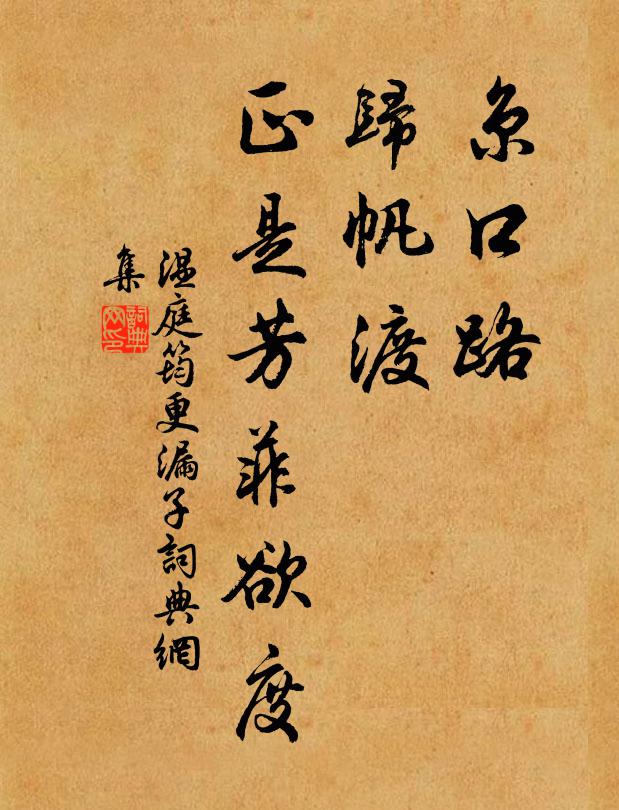 京口路
歸帆渡
正是芳菲欲度
溫庭筠更漏子詞典網
集
詞典
网印